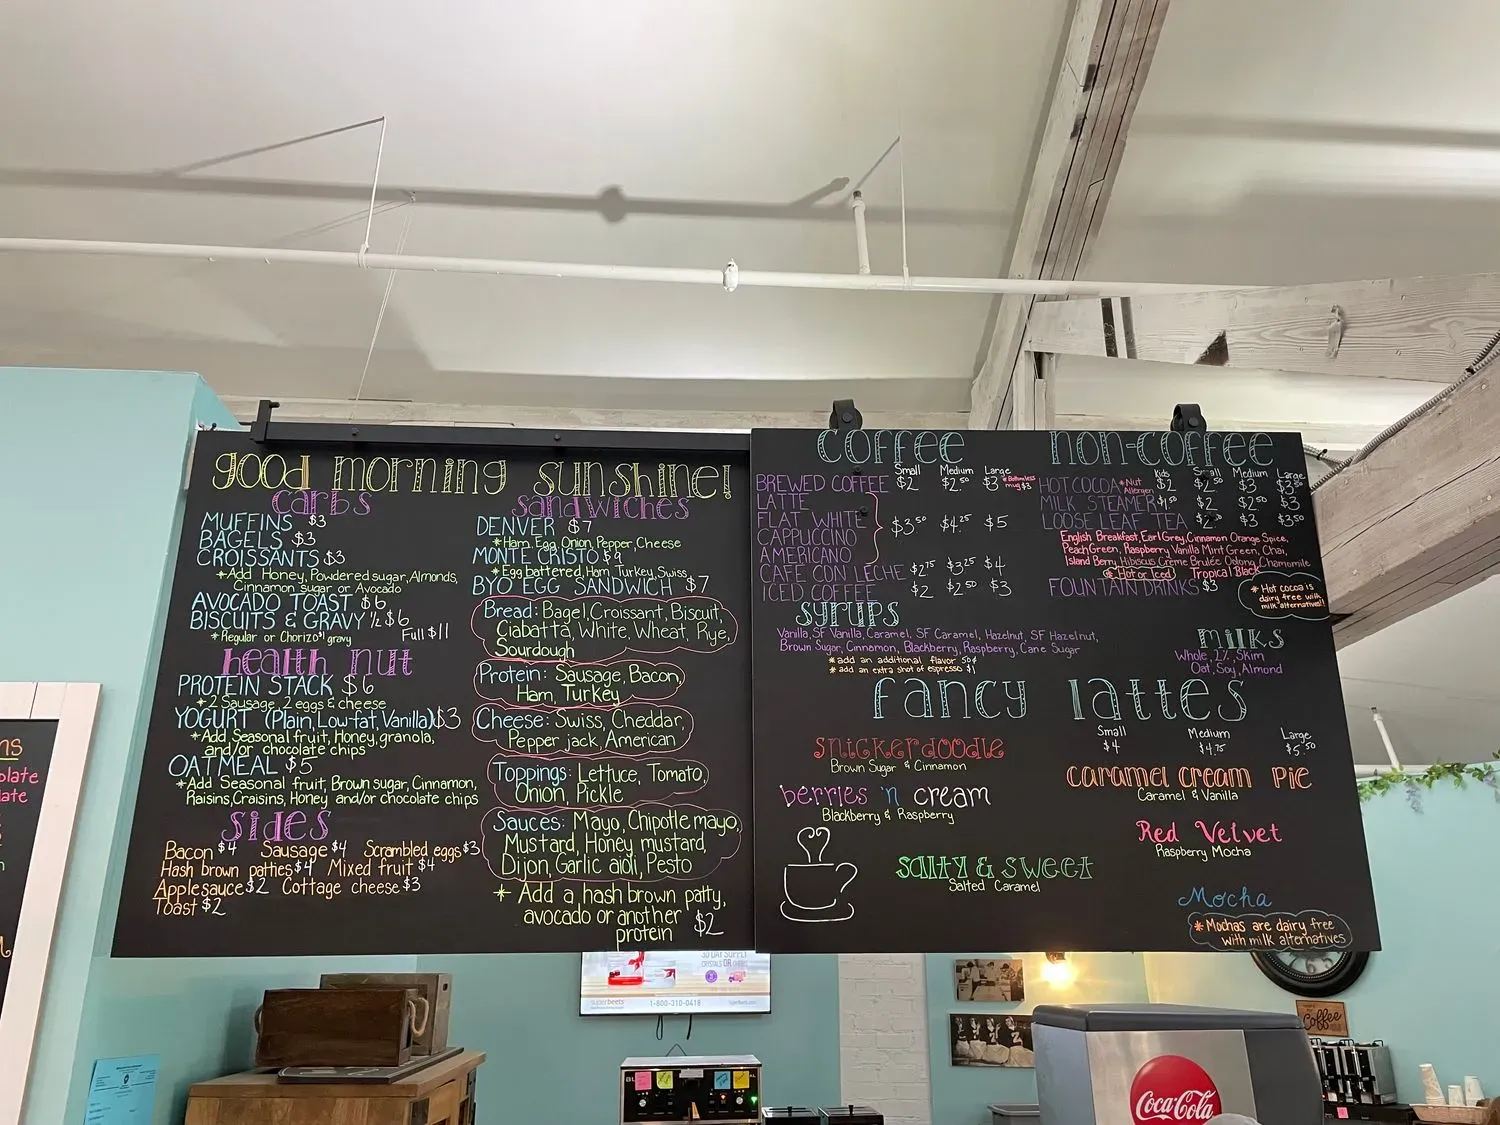 good morning sunshine!
carbs
MUFFINS $3
BAGELS $3
CROISSANTS $3
*Add Honey, Powdered sugar, Almonds,
Cinnamon sugar or Avocado
AVOCADO TOAST $6
BISCUITS & GRAVY ½ $6
*Regular or Chorizo gravy Full $11
health nut
PROTEIN STACK $6
*2 Sausage, 2 eggs & cheese
YOGURT (Plain, Low-fat, Vanilla) $3
*Add Seasonal fruit, Honey, granola,
and/or chocolate chips
OATMEAL $5
*Add Seasonal fruit, Brown sugar, Cinnamon,
Raisins, Craisins, Honey and/or chocolate chips
sides
Bacon $4 Sausage $4 Scrambled eggs $3
Hash brown patties $4 Mixed fruit $4
Applesauce $2 Cottage cheese $3
Toast $2
sandwiches
DENVER $7
*Ham, Egg, Onion, Pepper, Cheese
MONTE CRISTO $9
*Egg battered, Ham, Turkey, Swiss
BYO EGG SANDWICH $7
Bread: Bagel, Croissant, Biscuit,
Ciabatta, White, Wheat, Rye,
Sourdough
Protein: Sausage, Bacon,
Ham, Turkey
Cheese: Swiss, Cheddar,
Pepper jack, American
Toppings: Lettuce, Tomato,
Onion, Pickle
Sauces: Mayo, Chipotle mayo,
Mustard, Honey mustard,
Dijon, Garlic aioli, Pesto
* Add a hash brown patty,
avocado or another $2
protein
COFFEE
Small Medium Large
BREWED COFFEE $2 $2.50 $3 *Bottomless mug $3
LATTE
FLAT WHITE
CAPPUCCINO
AMERICANO
$3.50 $4.25 $5
CAFE CON LECHE $2.75 $3.25 $4
ICED COFFEE $2 $2.50 $3
syrups
Vanilla, SF Vanilla, Caramel, SF Caramel, Hazelnut, SF Hazelnut,
Brown Sugar, Cinnamon, Blackberry, Raspberry, Cane Sugar
*add an additional flavor 50¢
*add an extra shot of espresso $1
non-coffee
Kids Small Medium Large
HOT COCOA *Nut Allergen $2 $2.50 $3
MILK STEAMER $1.50 $2 $2.50 $3
LOOSE LEAF TEA $3 $3.50
English Breakfast, Earl Grey, Cinnamon Orange Spice,
Peach Green, Raspberry Vanilla Mint Green, Chai,
Island Berry Hibiscus Creme Brulee Oolong Chamomile
*Hot or Iced Tropical Black
FOUNTAIN DRINKS $3
*Hot cocoa is
dairy free with
milk alternatives!!
milks
Whole, 2%, Skim
Oat, Soy, Almond
fancy lattes
Small Medium Large
$4 $4.75 $5.50
snickerdoodle
Brown Sugar & Cinnamon
berries 'n cream
Blackberry & Raspberry
salty & sweet
Salted Caramel
caramel cream pie
Caramel & Vanilla
Red Velvet
Raspberry Mocha
Mocha
* Mochas are dairy free
with milk alternatives
superbeets 1-800-310-0418
Coffee
Coca-Cola